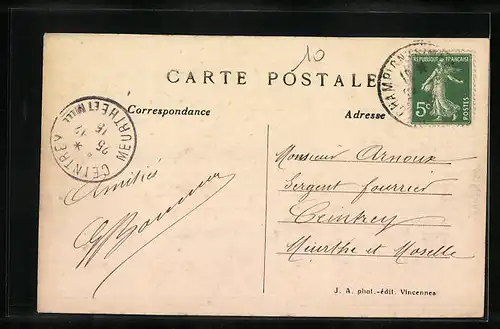 10
CARTE POSTALE
Correspondance
Adresse
REPUBLIQUE FRANÇAISE
5c
POSTES
CHAMPION
CEINTREY
MEURTHE ET MLLE
15 12
25
*
Amitiés
Monsieur Arnoux
Sergent fourrier
Ceintrey
Meurthe et Moselle
J. A. phot.-édit. Vincennes